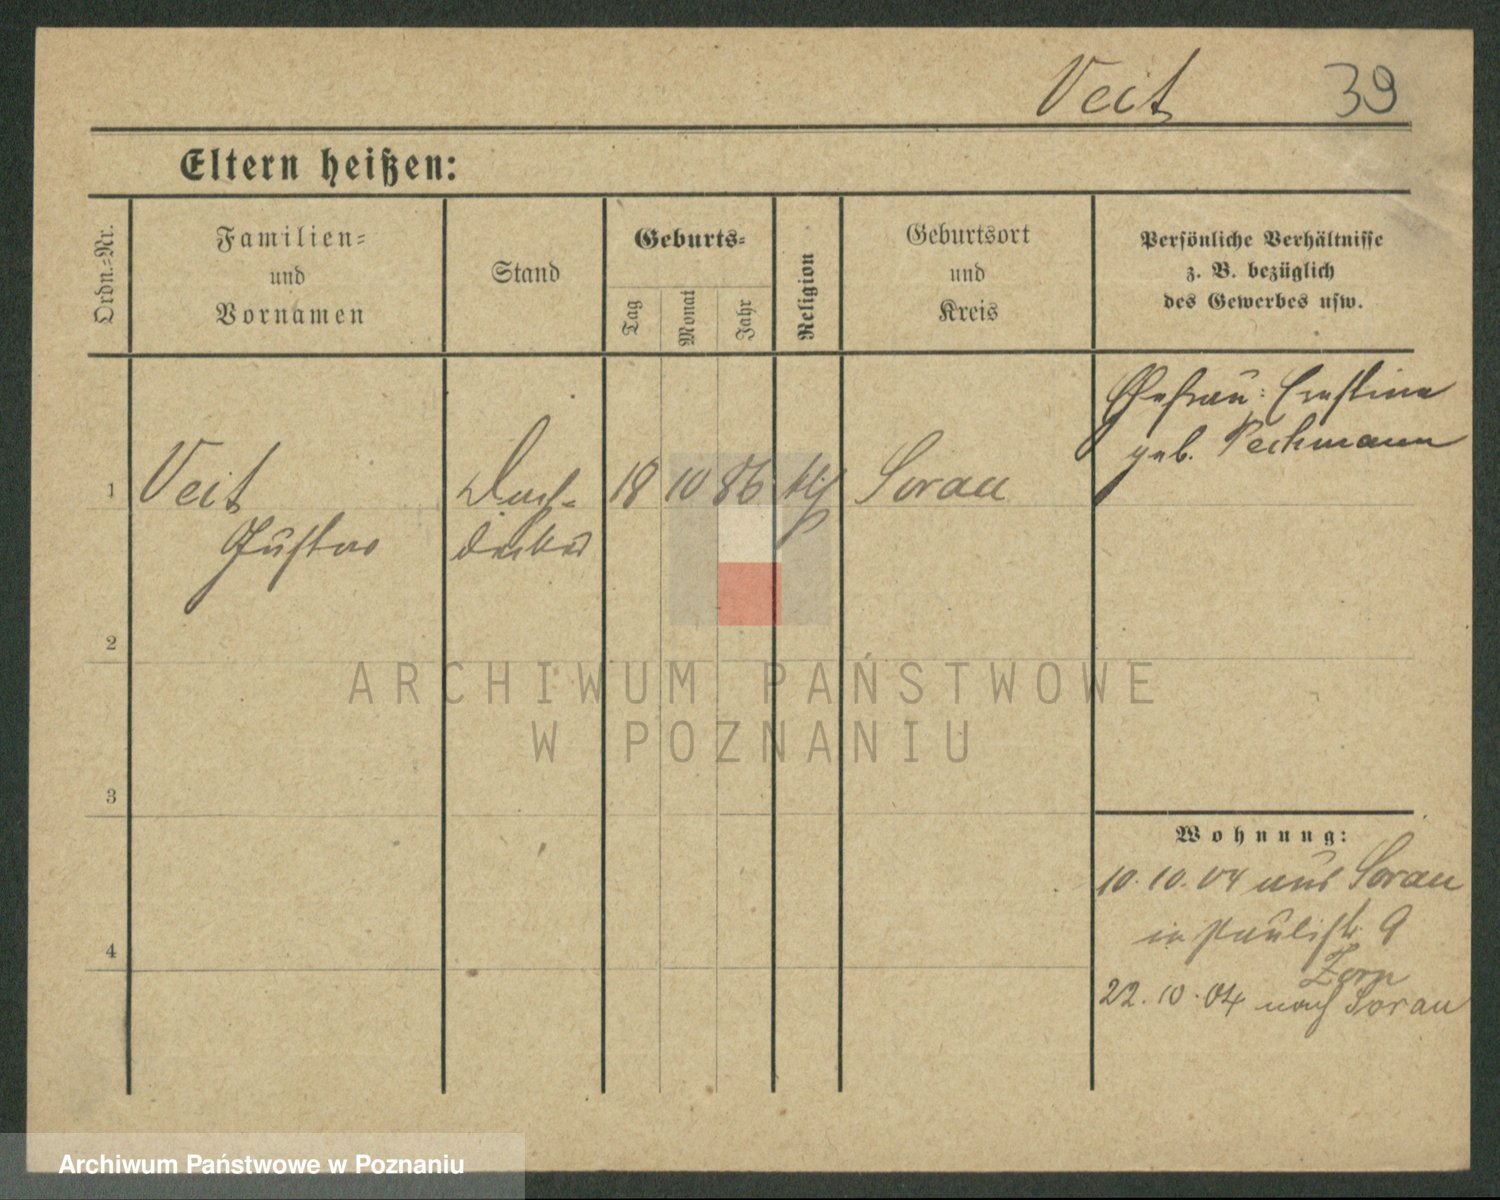 Veit 39
Eltern heißen:
Ordn.-Nr.
Familien-
und
Vornamen
Stand
Geburts-
Tag
Monat
Jahr
Religion
Geburtsort
und
Kreis
Persönliche Verhältnisse
z. B. bezüglich
des Gewerbes usw.
Ehefrau: Ernstina
geb. Pechmann
1 Veit Dach- 18 10 86 Sorau
Gustav decker
2
3
4
Wohnung:
10.10.04 aus Sorau
in Paulistr. 9
Zorn
22.10.04 nach Sorau
ARCHIWUM PAŃSTWOWE
W POZNANIU
Archiwum Państwowe w Poznaniu